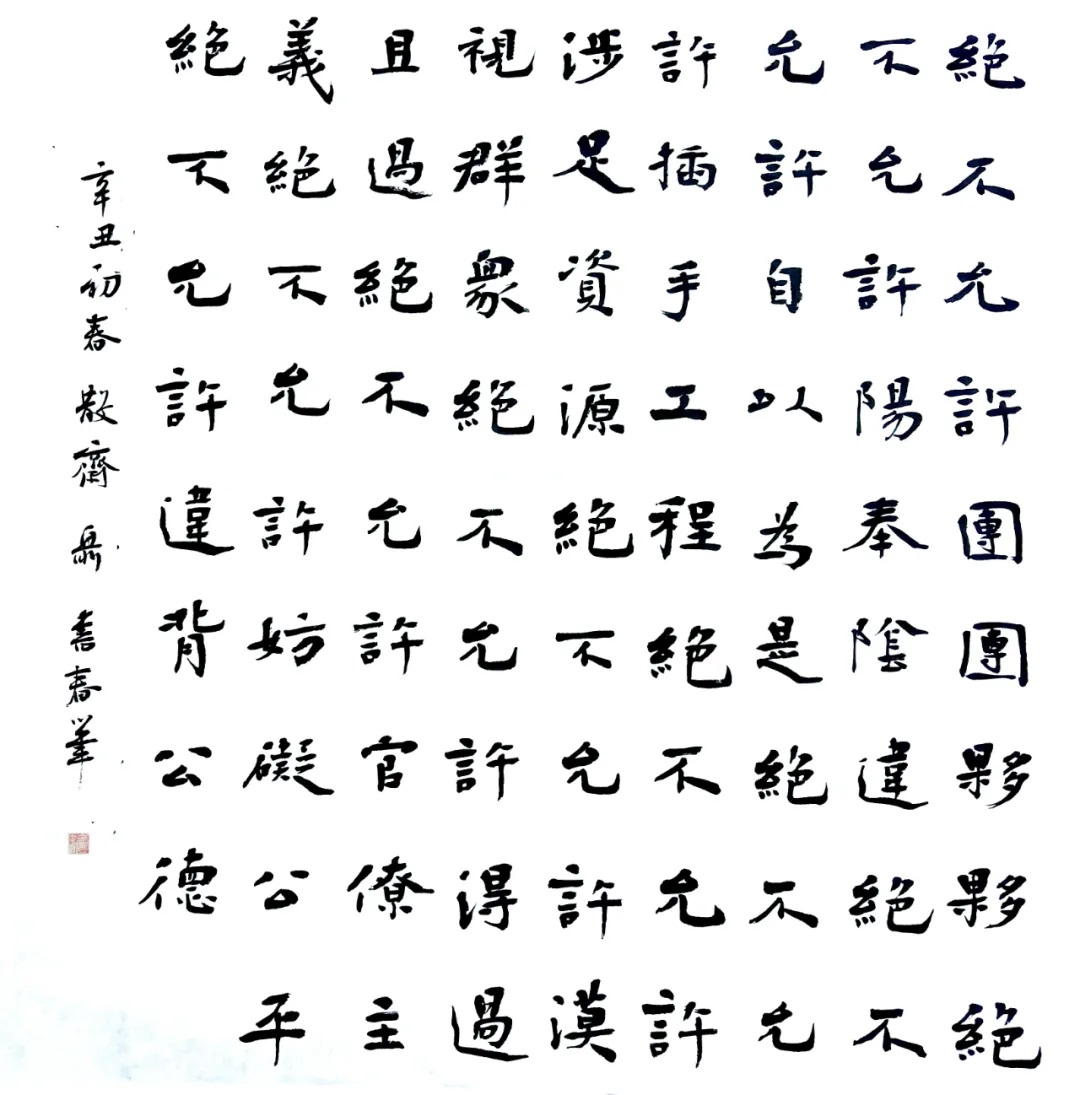 絕不允許團團夥夥絕
不允許陽奉陰違絕不
允許自以為是絕不允
許插手工程絕不允許
涉足資源絕不允許漠
視群衆絕不允許得過
且過絕不允許官僚主
義絕不允許妨礙公平
絕不允許違背公德
辛丑初春散齋聶書春筆